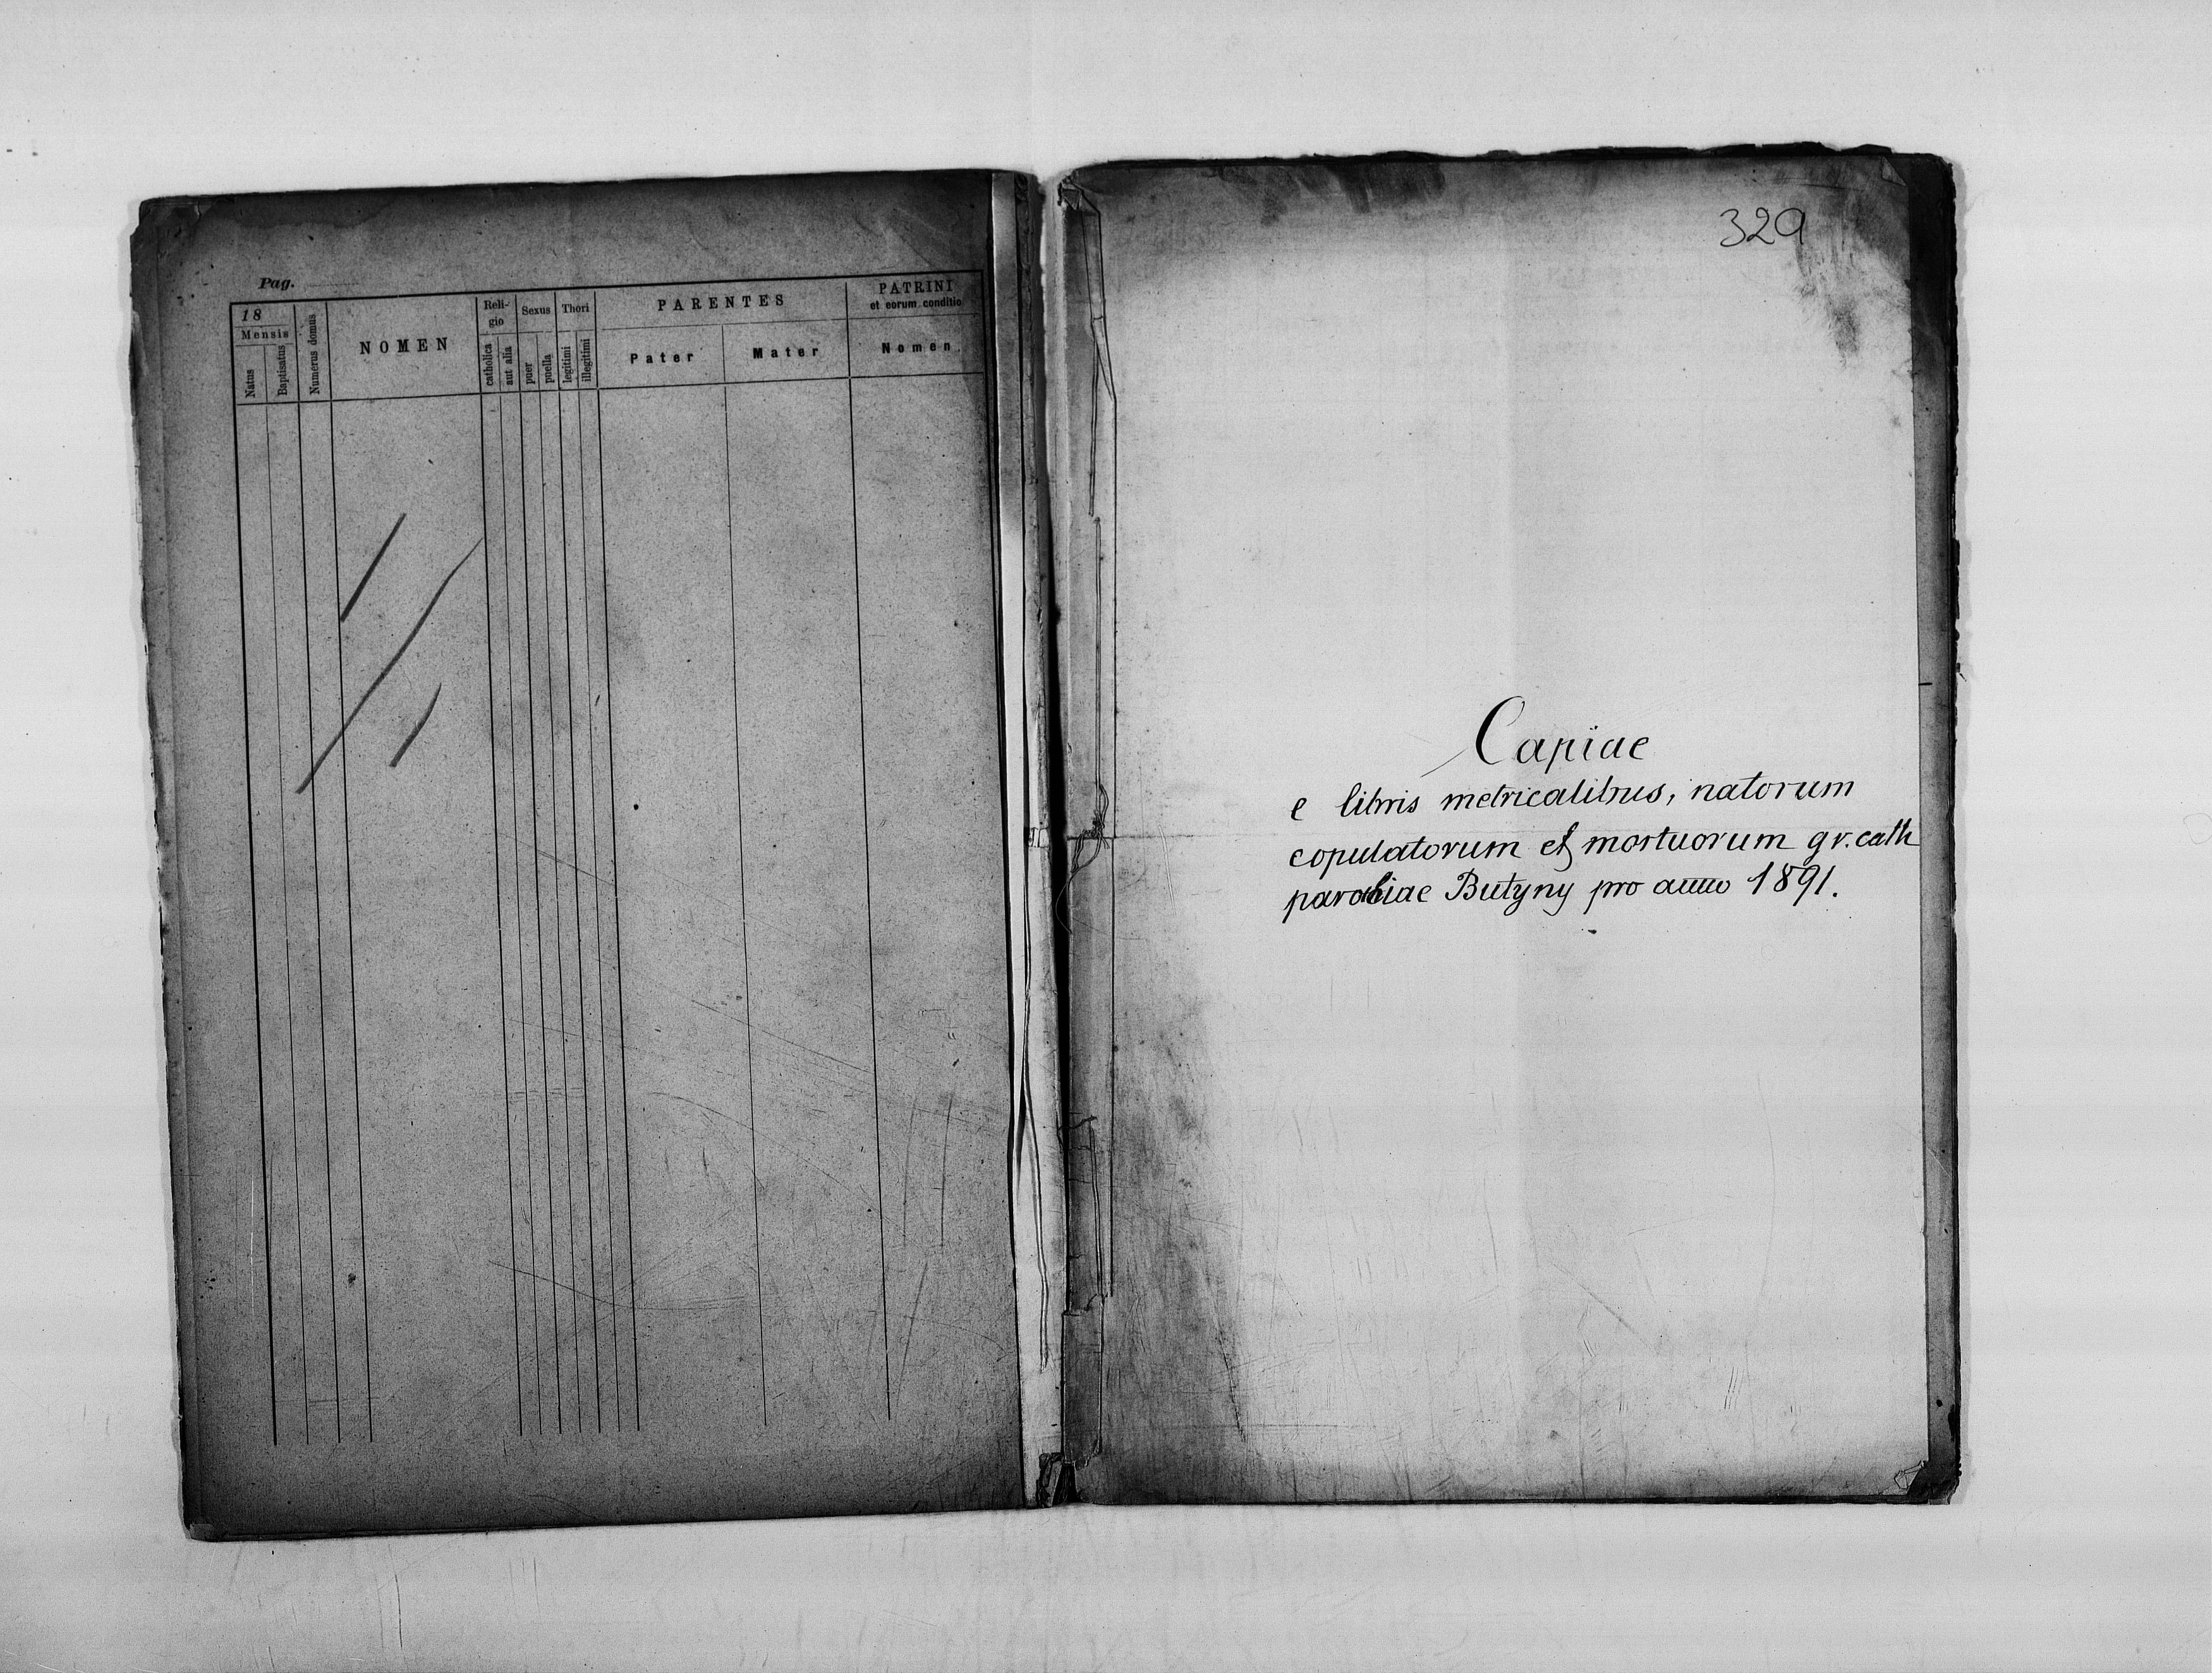 Pag.
18
Mensis
Natus
Baptisatus
Numerus domus
NOMEN
Reli-
gio
catholica
aut alia
Sexus
puer
puella
Thori
legitimi
illegitimi
PARENTES
Pater
Mater
PATRINI
et eorum conditio
Nomen
329
Capiae
e libris metricalibus, natorum
copulatorum et mortuorum gr. cath
parochiae Butyny pro anno 1891.